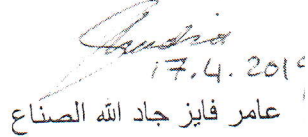 17.4.2019
عامر فايز جاد الله الصناع